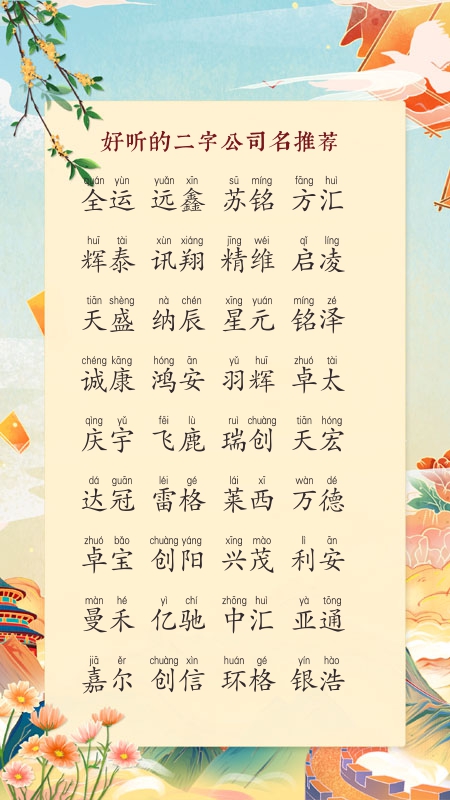 好听的二字公司名推荐
quán yùn yuǎn xīn sū míng fāng huì
全运 远鑫 苏铭 方汇
huī tài xùn xiáng jīng wéi qǐ líng
辉泰 讯翔 精维 启凌
tiān shèng nà chén xīng yuán míng zé
天盛 纳辰 星元 铭泽
chéng kāng hóng ān yǔ huī zhuó tài
诚康 鸿安 羽辉 卓太
qìng yǔ fēi lù ruì chuàng tiān hóng
庆宇 飞鹿 瑞创 天宏
dá guān léi gé lái xī wàn dé
达冠 雷格 莱西 万德
zhuó bǎo chuàng yáng xīng mào lì ān
卓宝 创阳 兴茂 利安
màn hé yì chí zhōng huì yà tōng
曼禾 亿驰 中汇 亚通
jiā ěr chuàng xìn huán gé yín hào
嘉尔 创信 环格 银浩